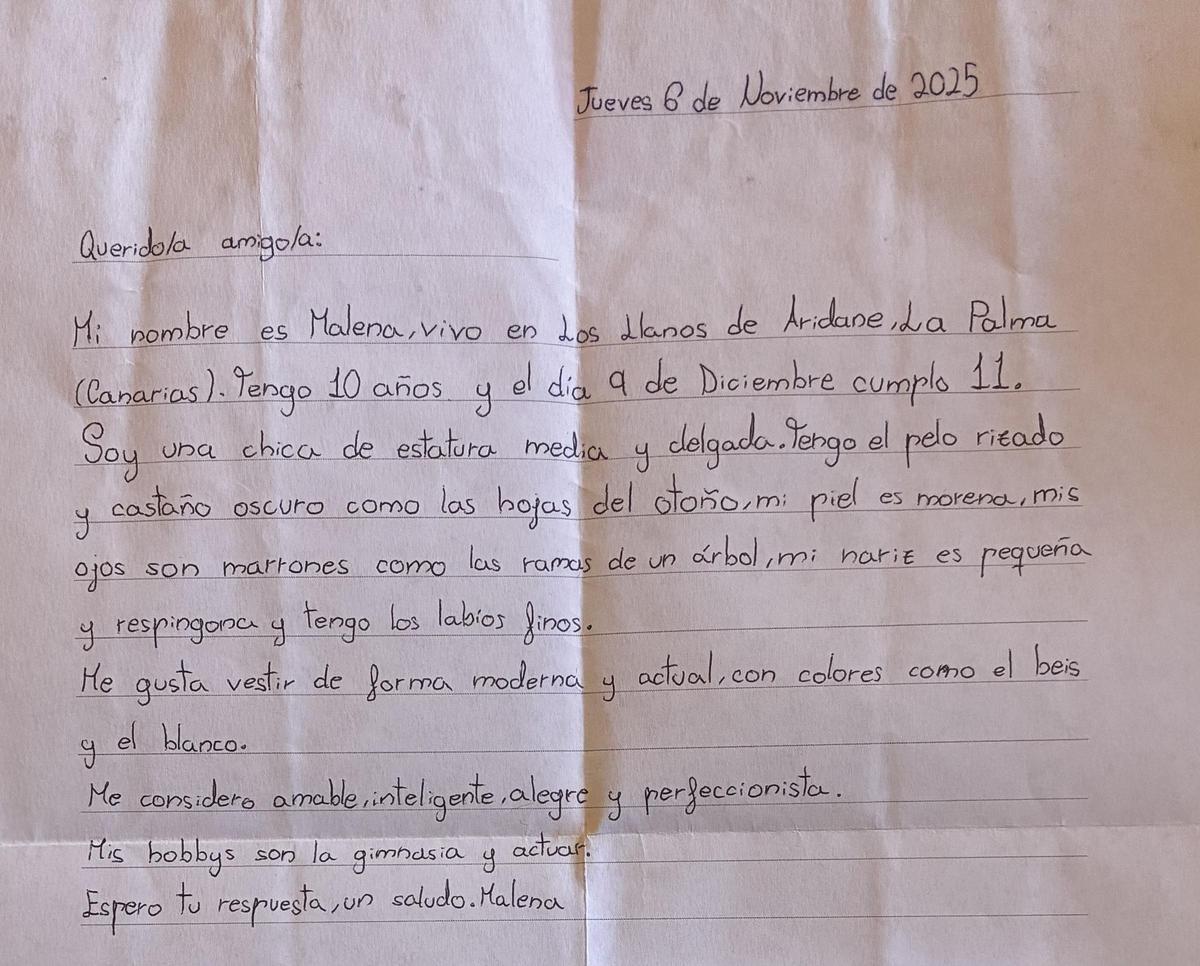 Jueves 6 de Noviembre de 2025
Querido/a amigo/a:
Mi nombre es Malena, vivo en Los Llanos de Aridane, La Palma
(Canarias). Tengo 10 años y el día 9 de Diciembre cumplo 11.
Soy una chica de estatura media y delgada. Tengo el pelo rizado
y castaño oscuro como las hojas del otoño, mi piel es morena, mis
ojos son marrones como las ramas de un árbol, mi nariz es pequeña
y respingona y tengo los labios finos.
Me gusta vestir de forma moderna y actual, con colores como el beis
y el blanco.
Me considero amable, inteligente, alegre y perfeccionista.
Mis hobbys son la gimnasia y actuar.
Espero tu respuesta, un saludo. Malena